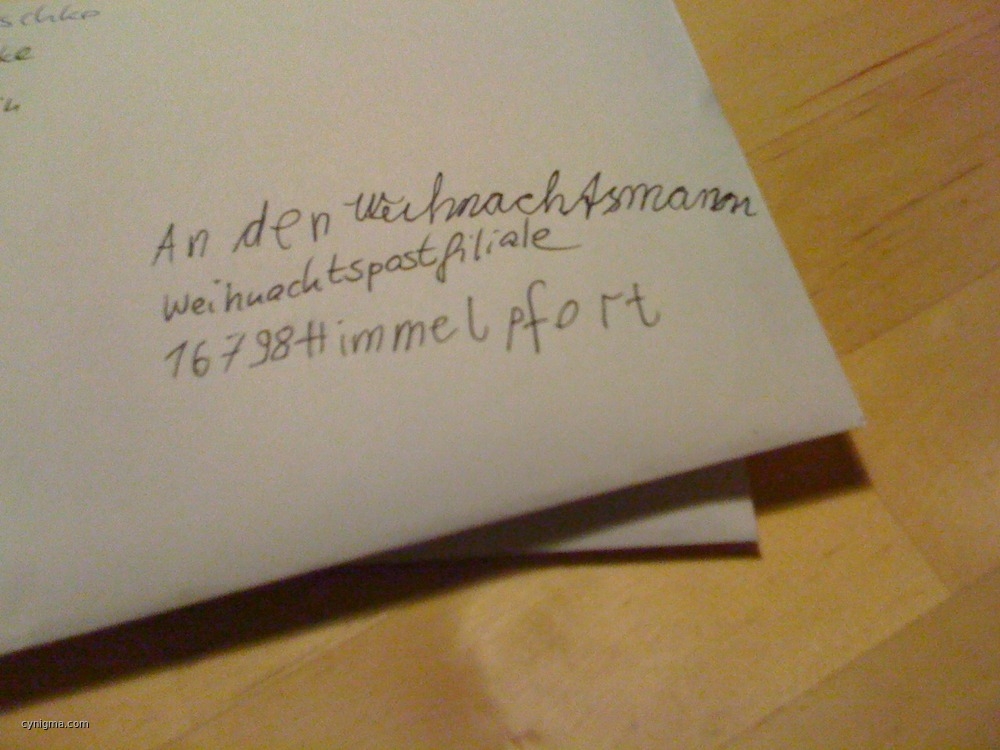 schko
ke
An den Weihnachtsmann
Weihnachtspostfiliale
16798 Himmelpfort
cynigma.com